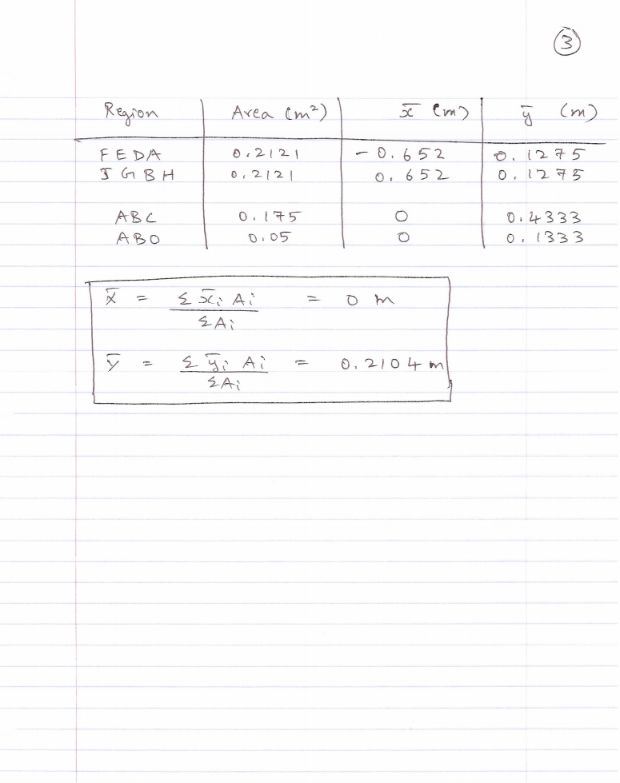 3
Region Area (m²) x̄ (m) ȳ (m)
FEDA 0.2121 -0.652 0.1275
IGBH 0.2121 0.652 0.1275
ABC 0.175 0 0.4333
ABO 0.05 0 0.1333
x̄ = Σ x̄i Ai / ΣAi = 0 m
ȳ = Σ ȳi Ai / ΣAi = 0.2104 m